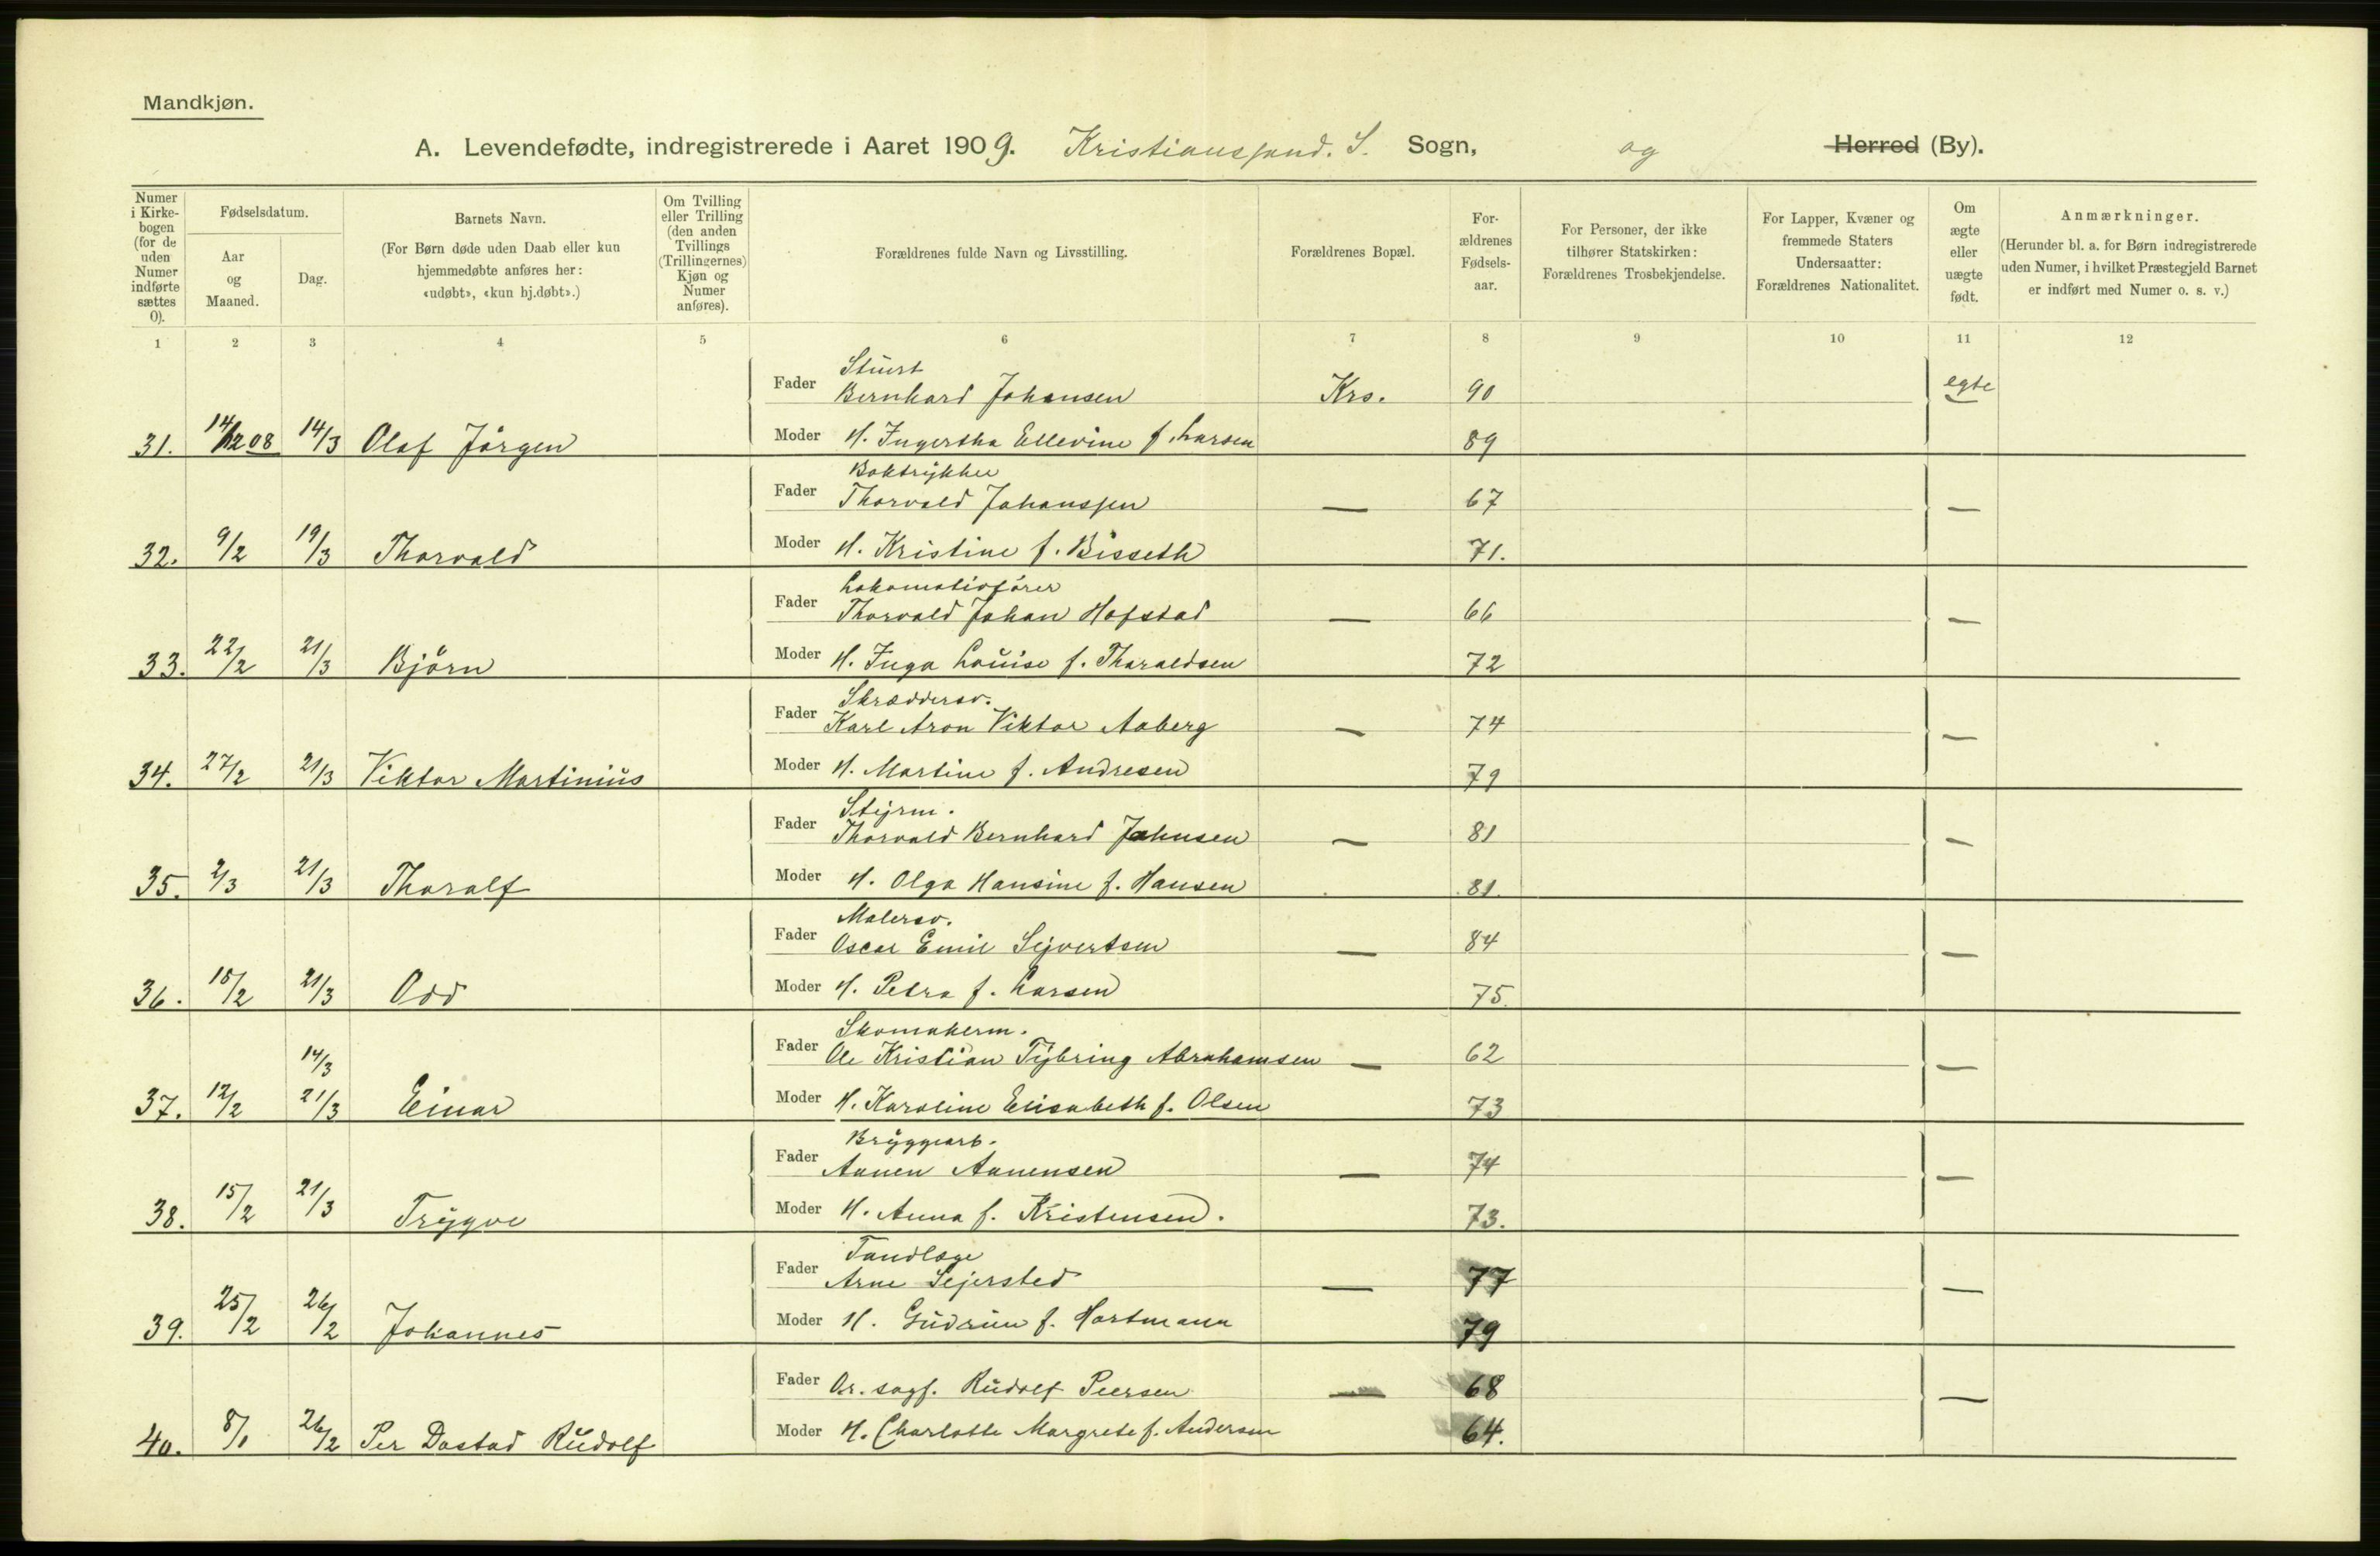 Mandkjøn.
A. Levendefødte, indregistrerede i Aaret 1909. Kristianssand. S. Sogn, og Herred (By).
Numer i Kirke-bogen (for de uden Numer indførte sættes 0).
Fødselsdatum.
Aar og Maaned.
Dag.
Barnets Navn.
(For Børn døde uden Daab eller kun hjemmedøbte anføres her: «udøbt», «kun hj.døbt».)
Om Tvilling eller Trilling (den anden Tvillings (Trillingernes) Kjøn og Numer anføres).
Forældrenes fulde Navn og Livsstilling.
Forældrenes Bopæl.
For-ældrenes Fødsels-aar.
For Personer, der ikke tilhører Statskirken: Forældrenes Trosbekjendelse.
For Lapper, Kvæner og fremmede Staters Undersaatter: Forældrenes Nationalitet.
Om ægte eller uægte født.
Anmærkninger.
(Herunder bl. a. for Børn indregistrerede uden Numer, i hvilket Præstegjeld Barnet er indført med Numer o. s. v.)
1 2 3 4 5 6 7 8 9 10 11 12
Stuert
Fader Bernhard Johansen Krs. 90 egte
31. 14/12 08 14/3 Olaf Jörgen Moder H. Ingertha Ellevine f. Larsen 89
Boktrykker
Fader Thorvald Johanssen — 67 —
32. 9/2 19/3 Thorvald Moder H. Kristine f. Bisseth 71.
Lokomotivfører
Fader Thorvald Johan Hofstad — 66 —
33. 22/2 21/3 Björn Moder H. Inga Louise f. Tharaldsen 72
Skræddersv.
Fader Karl Aron Viktor Aaberg — 74 —
34. 27/2 21/3 Viktor Martinius Moder H. Martine f. Andresen 79
Styrm.
Fader Thorvald Bernhard Johnsen — 81 —
35. 2/3 21/3 Thoralf Moder H. Olga Hansine f. Hansen 81.
Malersv.
Fader Oscar Emil Sejvertsen — 84 —
36. 18/2 21/3 Odd Moder H. Petra f. Larsen 75.
Skomakerm.
14/3 Fader Ole Kristian Tybring Abrahamsen — 62 —
37. 12/2 21/3 Einar Moder H. Karoline Elisabeth f. Olsen 73
Bryggearb.
Fader Aanen Aanensen — 74 —
38. 15/2 21/3 Trygve Moder H. Anna f. Kristensen. 73.
Tandlæge
Fader Arne Sejersted — 77 —
39. 25/2 26/2 Johannes Moder H. Gudrun f. Hartmann 79
Fader Or. sagf. Rudolf Peersen — 68 —
40. 8/1 26/2 Per Dastad Rudolf Moder H. Charlotte Margrete f. Andersen 64.